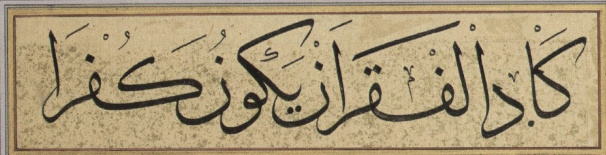 كَادَ الْفَقْرُ اَنْ يَكُونَ كُفْرًا